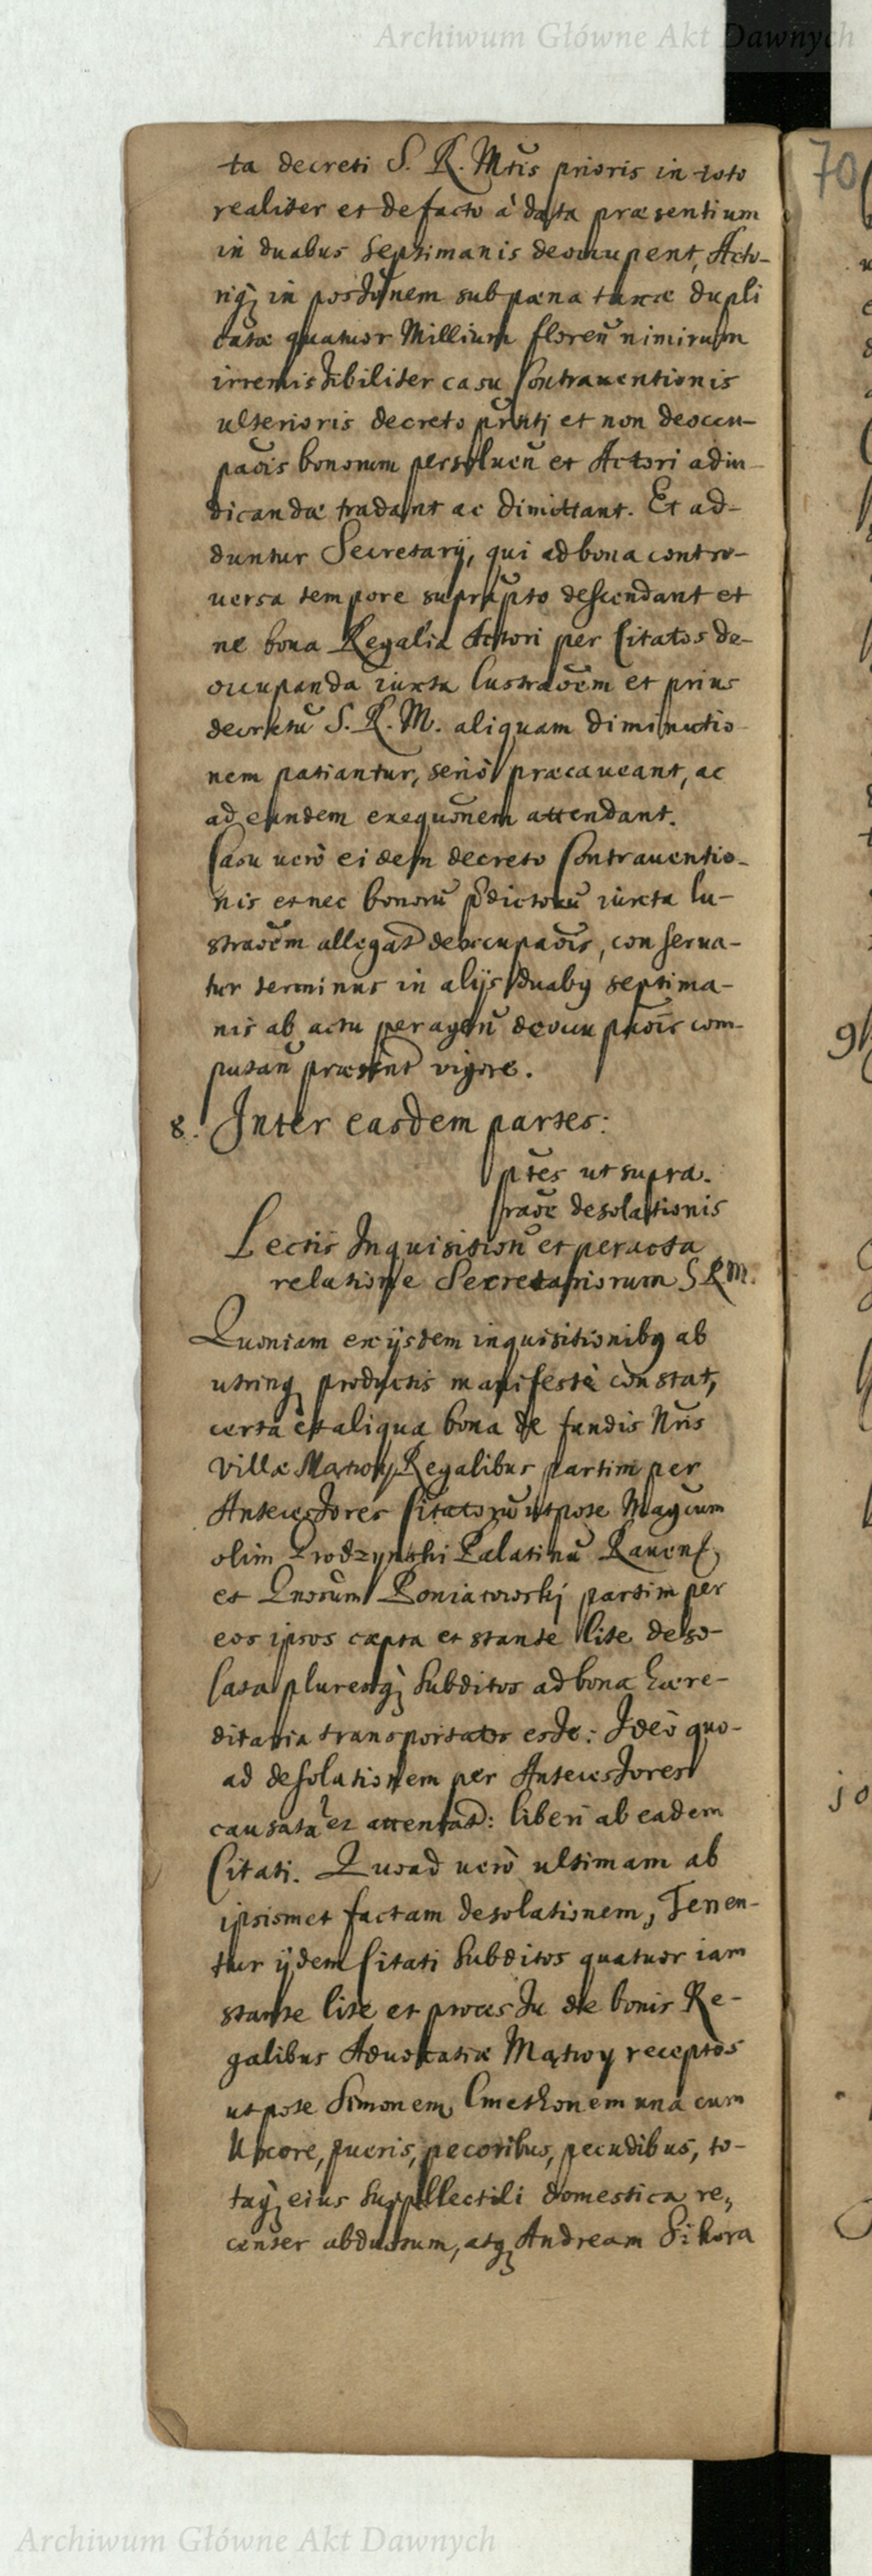 Archiwum Główne Akt Dawnych
ta decreti S. R. Mtis prioris in toto
realiter et de facto à data præsentium
in duabus septimanis deoccupent, Acto-
riq́ in possōnem sub pæna taxæ dupli
catæ quatuor Millium floreñ nimirum
irremissibiliter casu Contrauentionis
ulterioris decreto pr̃nti et non deoccu-
paōis bonorum persoluen̄ et Actori adiu-
dicandæ tradant ac dimittant. Et ad-
duntur Secretarij, qui ad bona contro-
uersa tempore suprap̄to descendant et
ne bona Regalia Actori per Citatos de-
occupanda iuxta lustraōem et prius
decretū S. R. M. aliquam diminutio-
nem patiantur, seriò præcaueant, ac
ad eundem exequōnem attendant.
Casu uerò eidem decreto Contrauentio-
nis et nec bonorū p̄dictorū iuxta lu-
straōem allegat deoccupaōis, conserua-
tur terminus in alijs duabq septima-
nis ab actu peragen̄ deoccupaōis com-
putan̄ præsent vigore.
8. Inter easdem partes:
ptes ut supra.
raōe desolationis
Lectis Inquisition̄ et peracta
relatione Secretariorum S R M.
Quoniam ex ijsdem inquisitionibq ab
utrinq productis manifestè constat,
certa et aliqua bona de fundis Nris
Villæ Mątwy Regalibus partim per
Antecessores Citatorū utpote Magcum
olim Prodzynski Palatinū Rauen̄,
et Gnosum Poniatowskj partim per
eos ipsos cæpta et stante lite deso-
lata pluresq́ subditos ad bona hære-
ditaria transportatos esse: Ideò quo-
ad desolationem per Antecessores
causatā et attentat: liberi ab eadem
Citati. Quoad uerò ultimam ab
ipsismet factam desolationem, Tenen-
tur ijdem Citati subditos quatuor iam
stante lite et processu de bonis Re-
galibus Aduocatiæ Mątwy receptos
utpote Simonem Cmethonem unà cum
Uxore, pueris, pecoribus, pecudibus, to-
taq́ eius suppellectili domestica re,
center abductum, atq Andream Sikora
70
Archiwum Główne Akt Dawnych